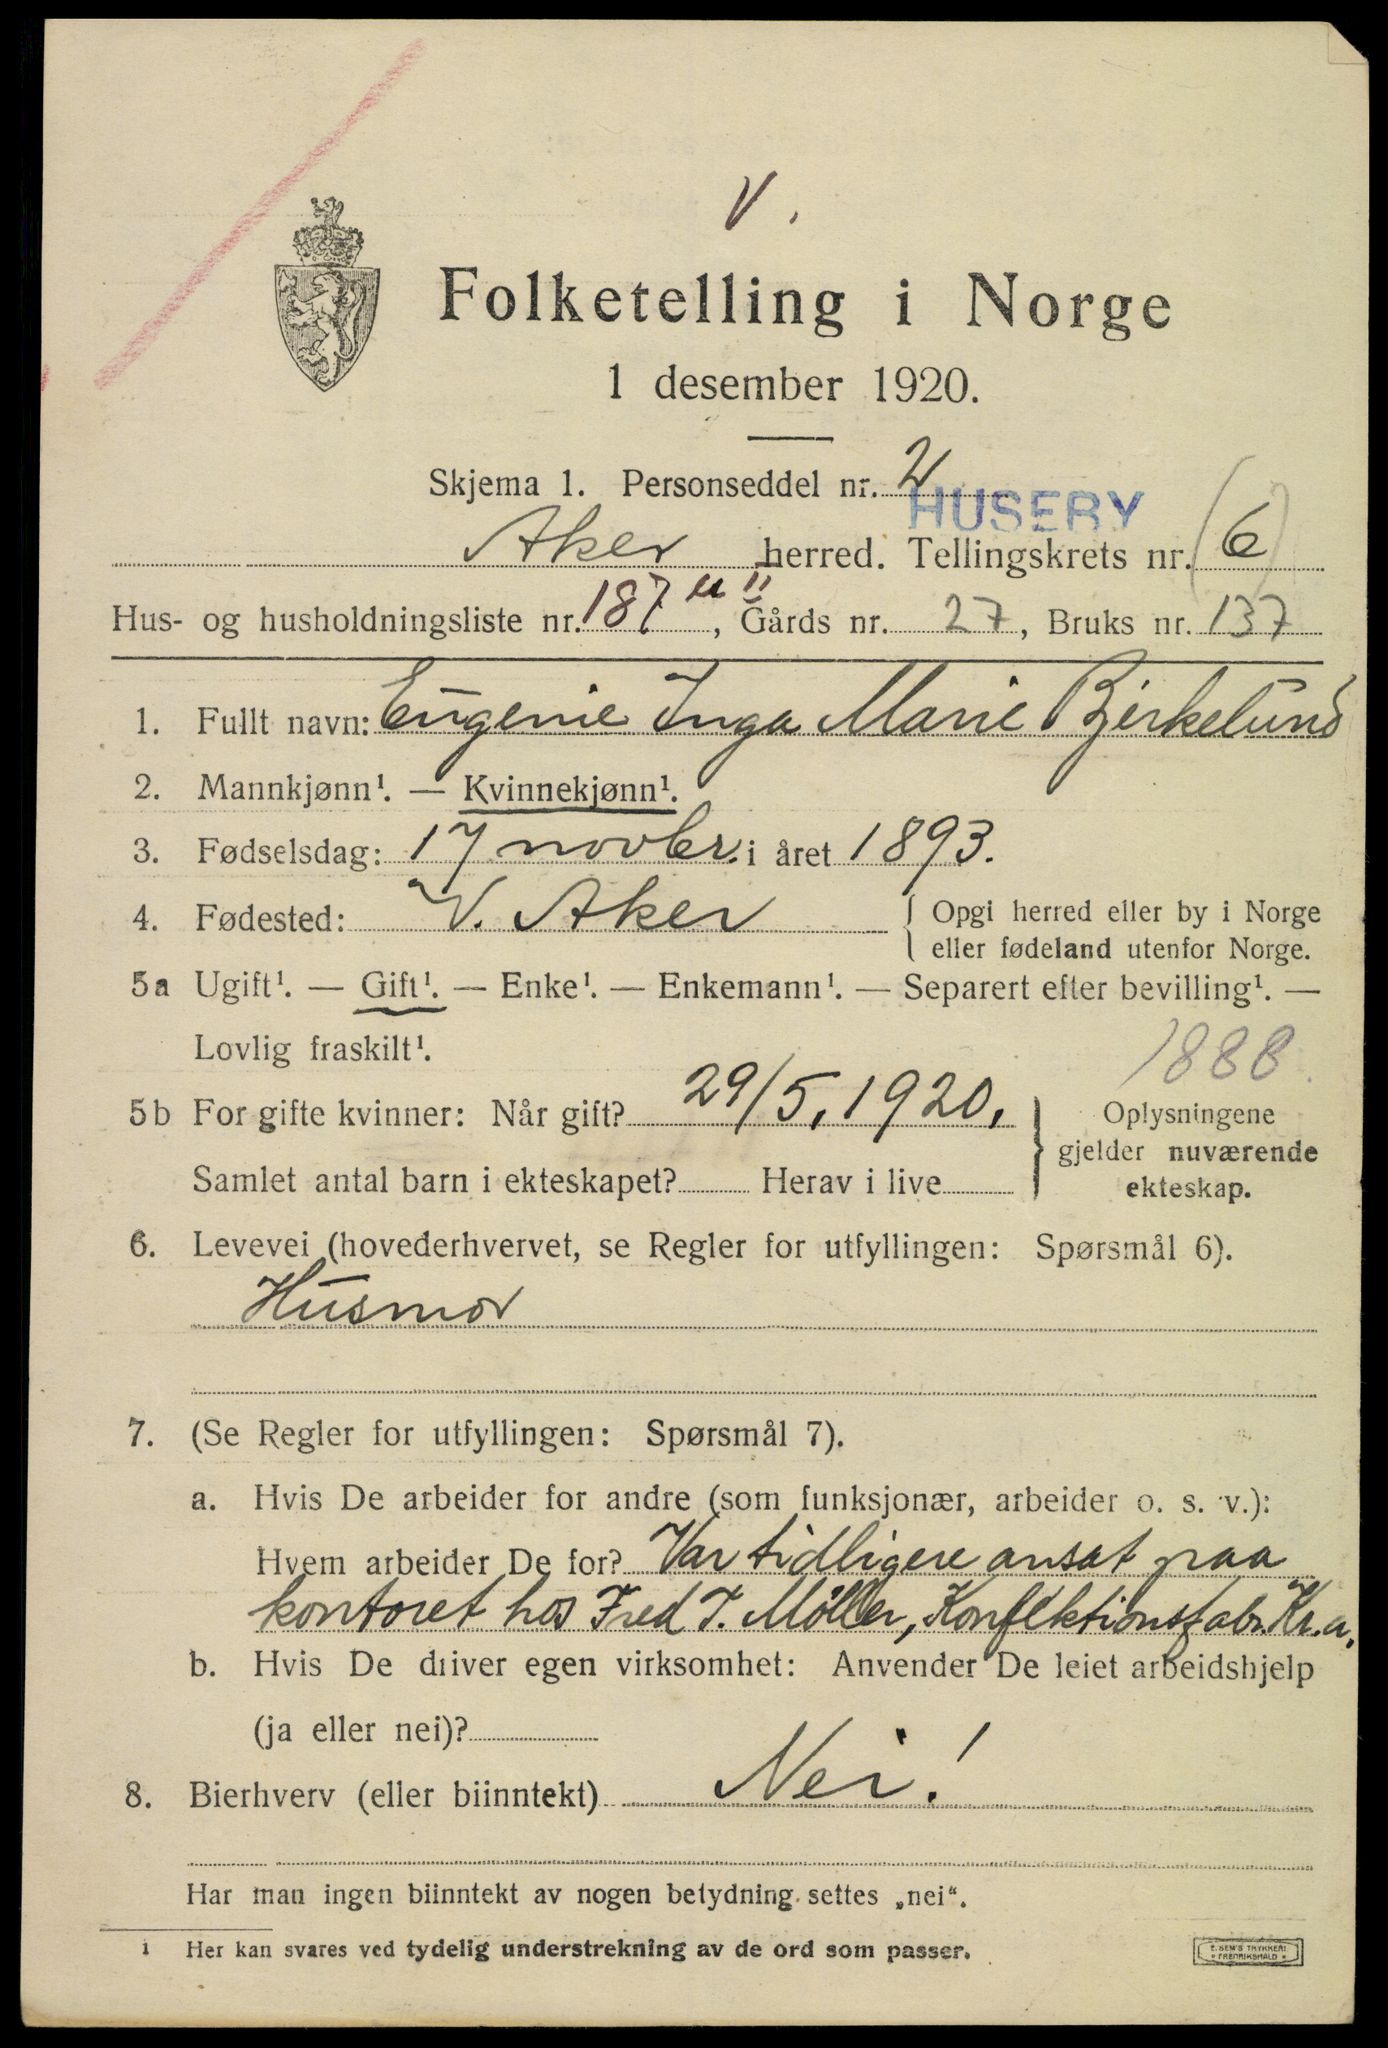 V.
Folketelling i Norge
1 desember 1920.
Skjema 1. Personseddel nr. 2
HUSEBY
Aker herred. Tellingskrets nr. (6)
Hus- og husholdningsliste nr. 187 u II, Gårds nr. 27, Bruks nr. 137
1. Fullt navn: Eugenie Inga Marie Bjerkelund
2. Mannkjønn¹. — Kvinnekjønn¹.
3. Fødselsdag: 17 novbr. i året 1893.
4. Fødested: V. Aker { Opgi herred eller by i Norge
eller fødeland utenfor Norge.
5a Ugift¹. — Gift¹. — Enke¹. — Enkemann¹. — Separert efter bevilling¹. —
Lovlig fraskilt¹.
1888
5b For gifte kvinner: Når gift? 29/5, 1920, } Oplysningene
gjelder nuværende
Samlet antal barn i ekteskapet? Herav i live ekteskap.
6. Levevei (hovederhvervet, se Regler for utfyllingen: Spørsmål 6).
Husmor
7. (Se Regler for utfyllingen: Spørsmål 7).
a. Hvis De arbeider for andre (som funksjonær, arbeider o. s. v.):
Hvem arbeider De for? Var tidligere ansat paa
kontoret hos Fred T. Møller, Konfektionsfabr. Kr.a.
b. Hvis De driver egen virksomhet: Anvender De leiet arbeidshjelp
(ja eller nei)?
8. Bierhverv (eller biinntekt) Nei!
Har man ingen biinntekt av nogen betydning settes „nei“.
1 Her kan svares ved tydelig understrekning av de ord som passer.
E. SEM'S TRYKKERI
* FREDRIKSHALD *